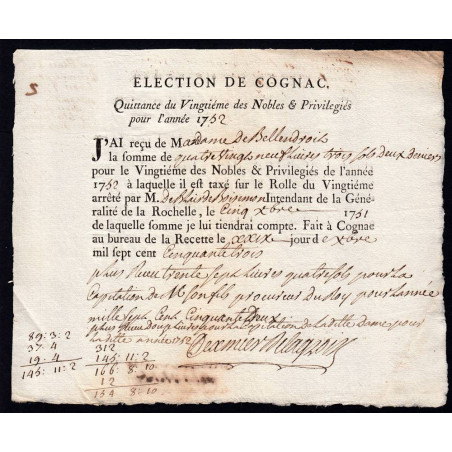 5
ELECTION DE COGNAC.
Quittance du Vingtiéme des Nobles & Privilegiés
pour l'année 1752
J'AI reçu de Madame de Bellendrois
la somme de quatre vingt neuf livres trois sols deux deniers
pour le Vingtiéme des Nobles & Privilegiés de l'année
1752 à laquelle il est taxé sur le Rolle du Vingtiéme
arrêté par M. de Intendant de la Géné-
ralité de la Rochelle, le cinq xbre 1751
de laquelle somme je lui tiendrai compte. Fait à Cognac
au bureau de la Recette le xxix jour de xbre
mil sept cent cinquante trois
plus Reçu trente sept livres quatre sols pour la
Capitation de M son fils procureur du Roy pour l'année
mille sept Cent Cinquante Deux
plus Reçu douze livres pour la Capitation de laditte Dame pour
laditte année 1752
89: 3: 2
37. 4
19. 4
145: 11: 2
312
145: 11: 2
166: 8
12
154. 8